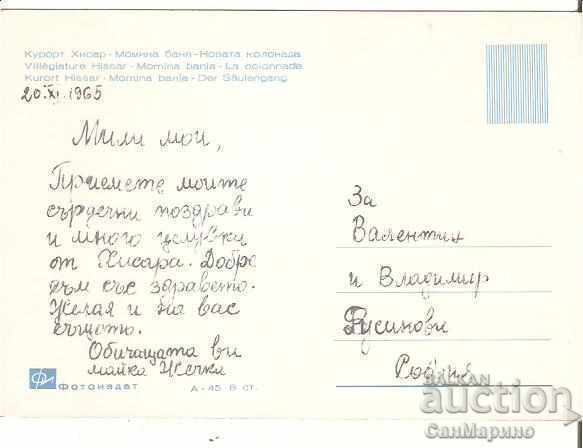 Курорт Хисар - Момина баня - Новата колонада
Villégiature Hissar - Momina banja - La colonnade
Kurort Hissar - Momina banja - Der Säulengang
20.XI.1965
Мили мои,
Приемете моите
сърдечни поздрави
и много целувки
от Хисаря. Добре
съм със здравето.
Желая и на вас
същото.
Обичащата ви
майка Жечка
За
Валентин
и Владимир
Русинови
Фотоиздат
А - 45. 8 ст.
BALKAN
auction
СанМарино